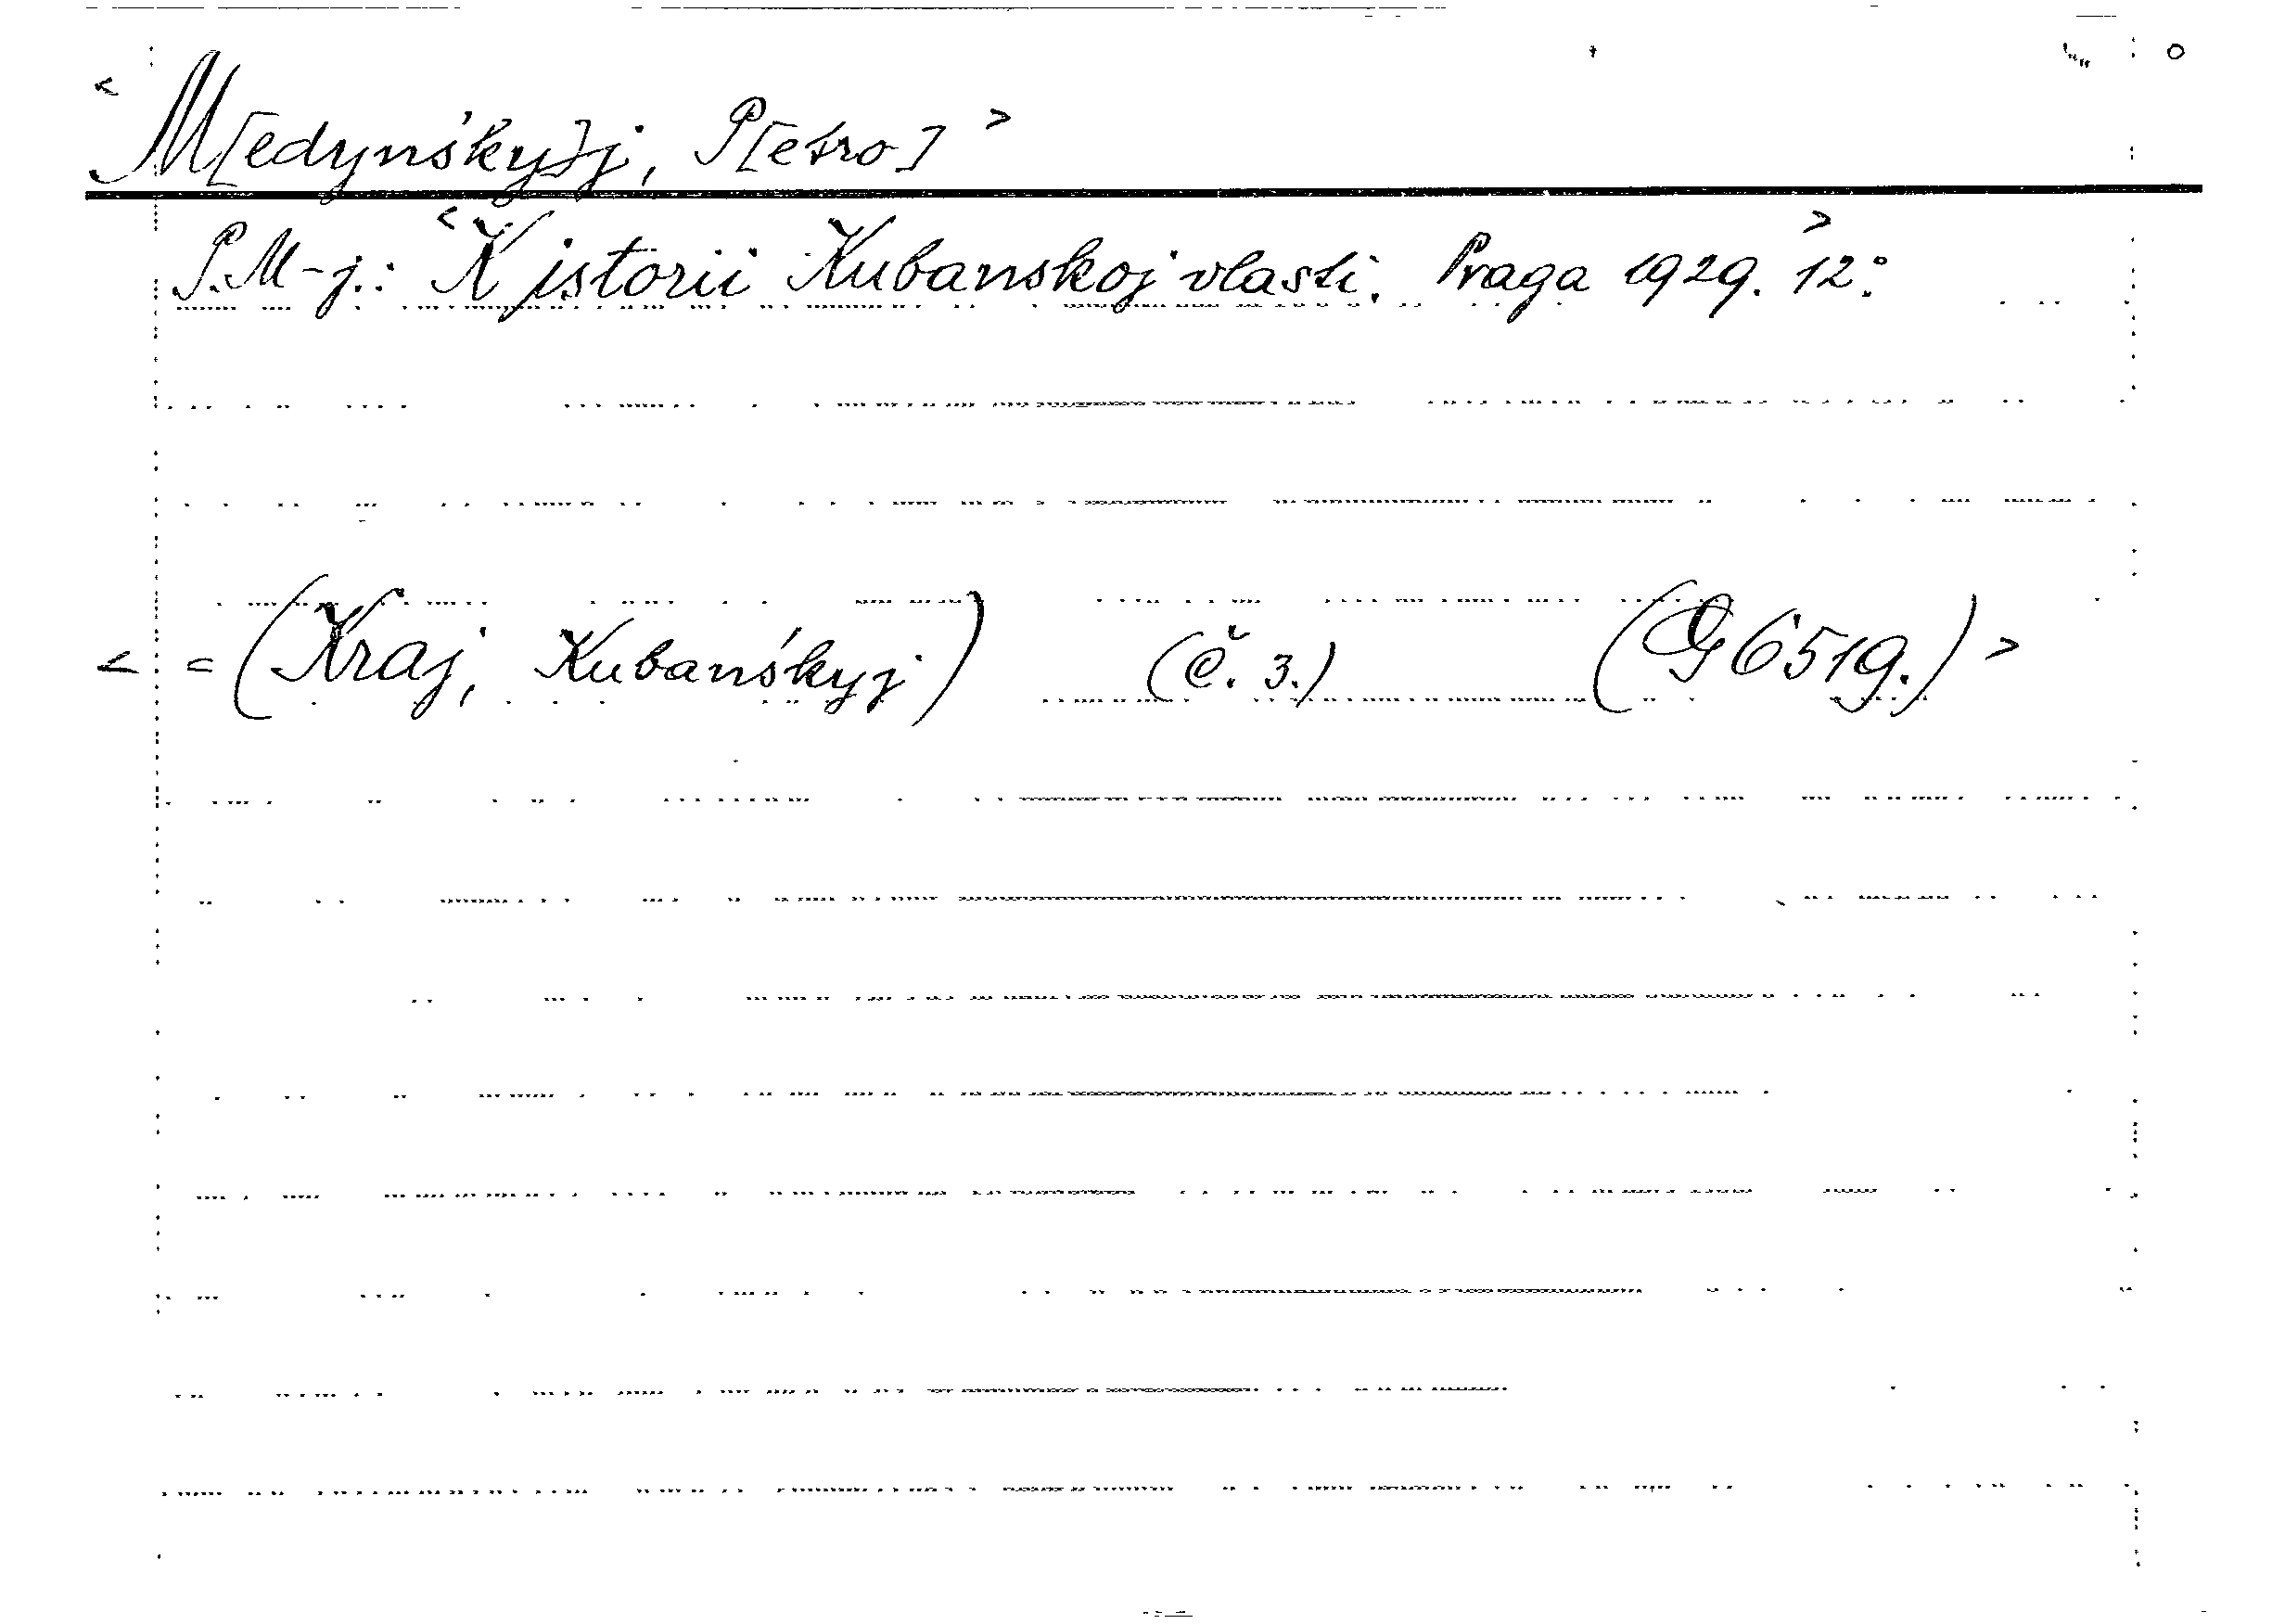 < M[edynśky]j, P[etro] >
P. M-j.: < K istorii Kubanskoj vlasti. Praga 1929. 12°. >
< = (Kraj, Kubanśkyj) (č. 3.) (G 6519.) >